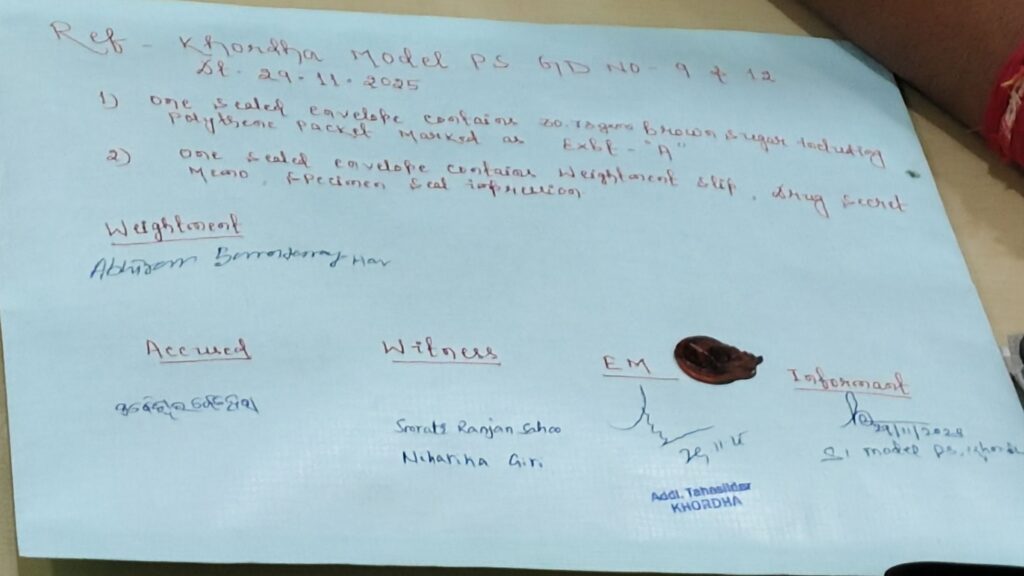 Ref - Khordha Model PS GD NO - 9 & 12
Dt. 29.11.2025
1) One sealed envelope contains Brown Sugar including
Polythene Packet Marked as Exbt - "A"
2) One sealed envelope contains Weightment Slip, Drug Secret
Memo, Specimen Seal impression
Weightment
Abhiram
Accused
Witness
EM
Informant
Smruti Ranjan Sahoo
Niharika Giri
29/11/2025
SI Model PS, Khordha
Addl. Tahasildar
KHORDHA